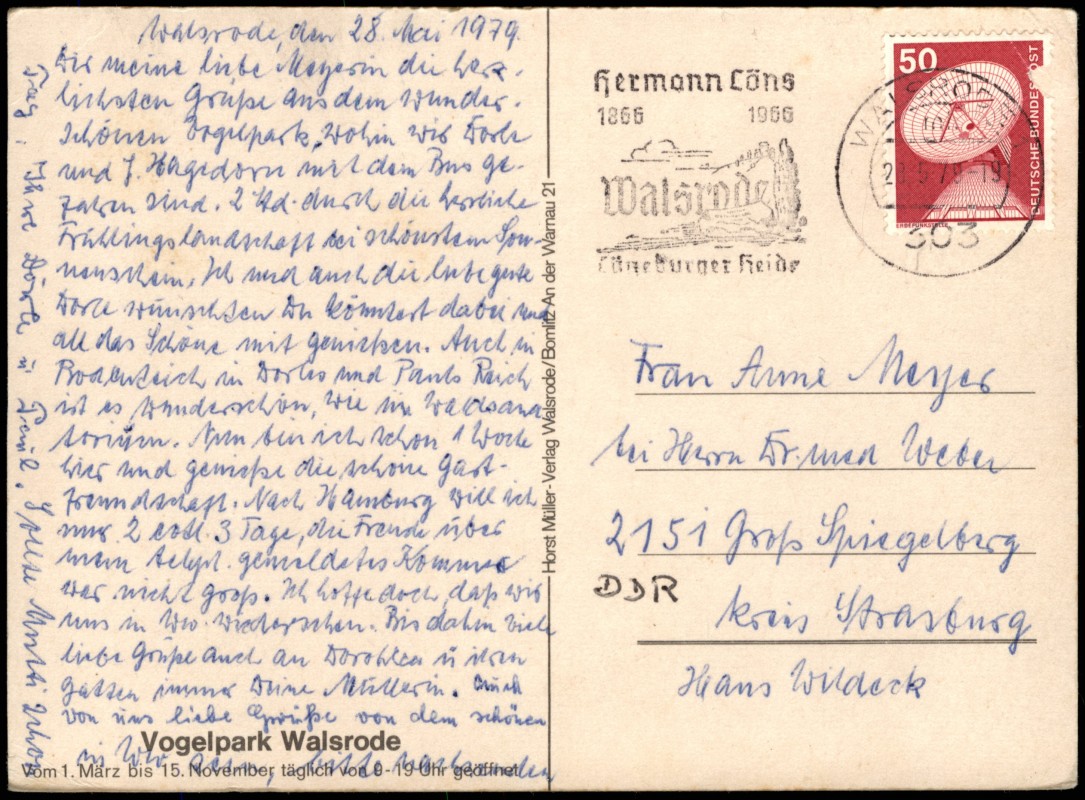 Walsrode, den 28. Mai 1979.
Dir meine liebe Meyerin die herz-
lichsten Grüße aus dem wunder-
schönen Vogelpark, wohin wir Dorle
und J. Hagedorn mit dem Bus ge-
fahren sind. 2 Std. durch die herrliche
Frühlingslandschaft bei schönstem Son-
nenschein. Ich und auch die liebe gute
Dorle wünschten Du könntest dabei und
all das Schöne mit genießen. Auch in
Bodenteich in Dorles und Pauls Reich
ist es wunderschön, wie im Waldsana
torium. Nun bin ich schon 1 Woche
hier und genieße die schöne Gast-
freundschaft. Nach Hamburg will ich
nur 2 evtl. 3 Tage, die Freude über
mein teleph. gemeldetes Kommen
war nicht groß. Ich hoffe doch, daß wir
uns in Wo. wiedersehen. Bis dahin viele
liebe Grüße auch an Dorothea u ihren
Gatten immer Deine Müllerin. Auch
von uns liebe Grüße von dem schönen
Tag. Ihre Dorle u Paul. Sollte Mutti schon
in Wo sein, bitte nachsenden
Vogelpark Walsrode
Vom 1. März bis 15. November täglich von 9-19 Uhr geöffnet
Horst Müller-Verlag Walsrode/Bomlitz An der Warnau 21
Hermann Löns
1866 1966
Walsrode
Lüneburger Heide
WALSRODE
-19
303
50
DEUTSCHE BUNDESPOST
ERDEFUNKSTELLE
Frau Anne Meyer
bei Herrn Dr. med Weber
2151 Groß Spiegelberg
DDR
Kreis Strasburg
Hans Wildeck